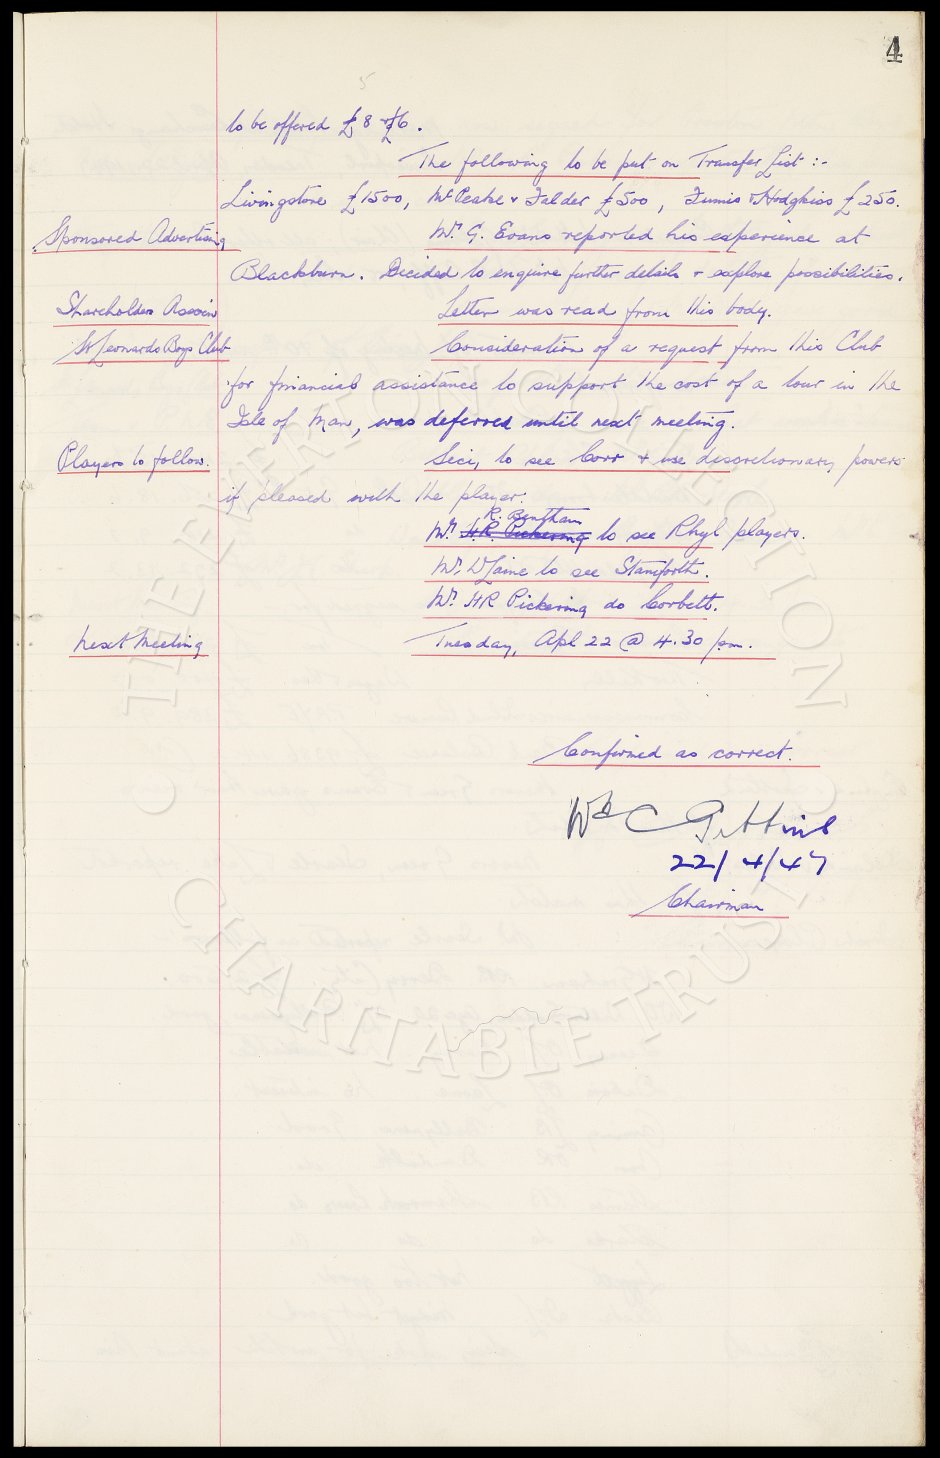 4
5
to be offered £8 & £6.
The following to be put on Transfer List :-
Livingstone £1500, McPeake & Falder £500, Finnis & Hodgkiss £250.
Sponsored Advertising Mr. G. Evans reported his experience at
Blackburn. Decided to enquire further details & explore possibilities.
Shareholders Assocn Letter was read from this body.
St Leonards Boys Club Consideration of a request from this Club
for financial assistance to support the cost of a tour in the
Isle of Man, was deferred until next meeting.
Players to follow. Secy. to see Corr & use discretionary powers
if pleased with the player.
R. Bentham
Mr. H.R. Pickering to see Rhyl players.
Mr. to see Staniforth.
Mr. HR Pickering do Corbett.
Next Meeting Tuesday, Apl 22 @ 4.30 pm.
Confirmed as correct.
Wm C Gittins
22/4/47
Chairman
© THE EVERTON COLLECTION
CHARITABLE TRUST